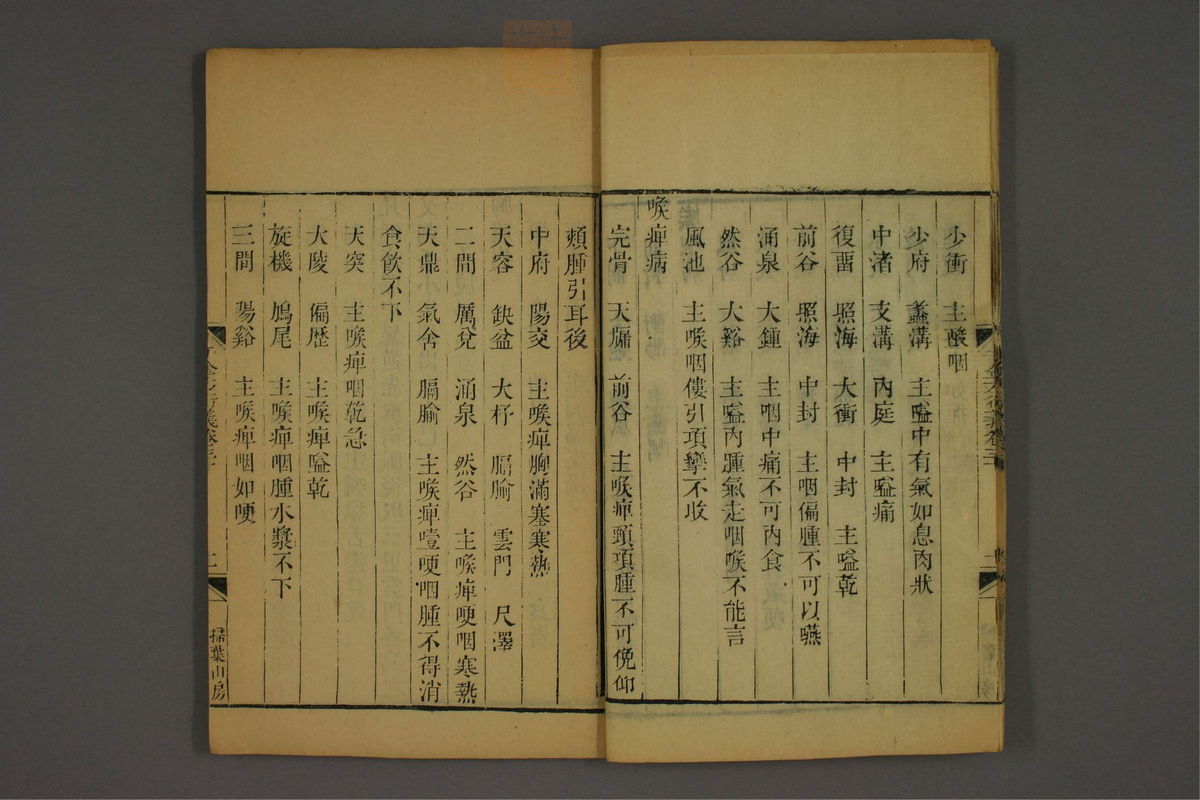 少衝　主酸咽
少府　蠡溝　主嗌中有氣如息肉狀
中渚　支溝　內庭　主嗌痛
復畱　照海　大衝　中封　主嗌乾
前谷　照海　中封　主咽偏腫不可以嚥
涌泉　大鍾　主咽中痛不可內食
然谷　大谿　主嗌內腫氣走咽喉不能言
風池　主喉咽僂引項攣不收
喉痺病
完骨　天牖　前谷　主喉痺頸項腫不可俛仰
頰腫引耳後
中府　陽交　主喉痺胸滿塞寒熱
天容　缺盆　大杼　膈腧　雲門　尺澤
二間　厲兌　涌泉　然谷　主喉痺哽咽寒熱
天鼎　氣舍　膈腧　主喉痺噎哽咽腫不得消
食飲不下
天突　主喉痺咽乾急
大陵　偏歷　主喉痺嗌乾
旋機　鳩尾　主喉痺咽腫水漿不下
三間　陽谿　主喉痺咽如哽
千金方衍義卷三十
二
掃葉山房